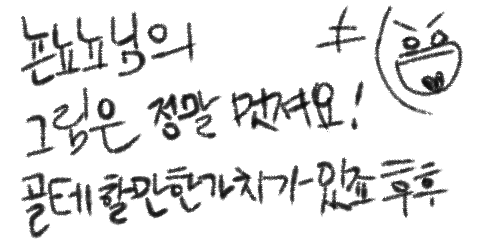 뇬뇨뇨님의
그림은 정말 멋져요!
골테할만한가치가있죠후후